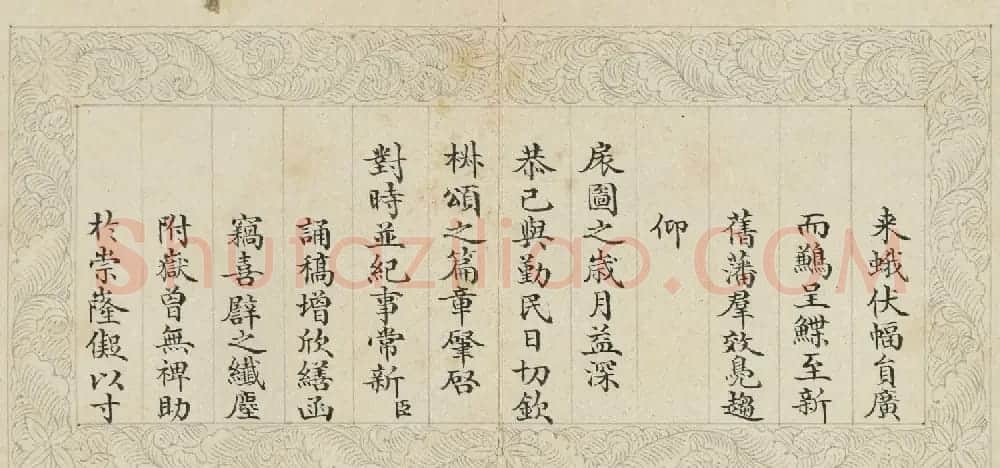 来蛾伏幅員廣
而鶼呈鰈至新
舊藩羣效鳧趨
仰
扆圖之歲月益深
恭己與勤民日切欽
樹頌之篇章肇啓
對時並紀事常新臣
誦稿增欣繕函
竊喜譬之纖塵
附嶽曾無裨助
於崇隆儗以寸
Shufaziliao.COM